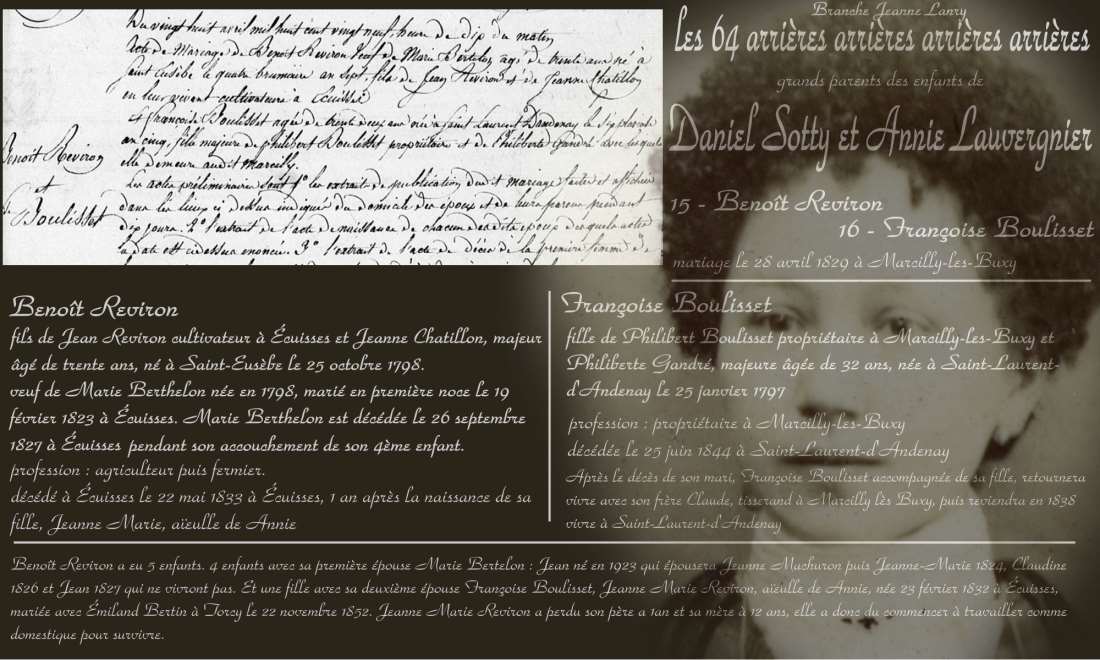 Du vingt huit avril mil huit cent vingt neuf, heure de dix du matin
Acte de Mariage de Benoit Reviron veuf de Marie Bertelon age de trente ans né à
Saint Eusèbe le quatre brumaire an Sept, fils de Jean Reviron et de Jeanne Chatillon
en leur vivent cultivateurs à Ecuisses
Et françoise Boulisset agée de trente deux ans née à Saint Laurent Dandenay le Six pluviose
an cinq, fille majeure de philibert Boulisset propriétaire et de Philiberte Gandré avec lesquels
elle demeure audit Marcilly.
Les actes préliminaires Sont 1° les extraits de publication dudit mariage faites et affichées
dans les lieux ci dessus indiqué du domicile des epoux et de leurs parens pendant
dix jours. 2° l'extrait de l'acte de naissance de chacun des dits epoux desquels actes
la date est cidessus enoncée. 3° l'extrait de l'acte de décès de la première femme
Benoit Reviron
et
Boulisset
Branche Jeanne Lanry
les 64 arrières arrières arrières arrières
grands parents des enfants de
Daniel Sotty et Annie Lauvergnier
15 - Benoît Reviron
16 - Françoise Boulisset
mariage le 28 avril 1829 à Marcilly-les-Buxy
Benoît Reviron
fils de Jean Reviron cultivateur à Écuisses et Jeanne Chatillon, majeur
âgé de trente ans, né à Saint-Eusèbe le 25 octobre 1798.
veuf de Marie Berthelon née en 1798, marié en première noce le 19
février 1823 à Écuisses. Marie Berthelon est décédée le 26 septembre
1827 à Écuisses pendant son accouchement de son 4ème enfant.
profession : agriculteur puis fermier.
décédé à Écuisses le 22 mai 1833 à Écuisses, 1 an après la naissance de sa
fille, Jeanne Marie, aïeulle de Annie
Françoise Boulisset
fille de Philibert Boulisset propriétaire à Marcilly-les-Buxy et
Philiberte Gandré, majeure âgée de 32 ans, née à Saint-Laurent-
d'Andenay le 25 janvier 1797
profession : propriétaire à Marcilly-les-Buxy
décédée le 25 juin 1844 à Saint-Laurent-d'Andenay
Après le décès de son mari, Françoise Boulisset accompagnée de sa fille, retournera
vivre avec son frère Claude, tisserand à Marcilly lès Buxy, puis reviendra en 1838
vivre à Saint-Laurent-d'Andenay
Benoît Reviron a eu 5 enfants. 4 enfants avec sa première épouse Marie Bertelon : Jean né en 1923 qui épousera Jeanne Machuron puis Jeanne-Marie 1824, Claudine
1826 et Jean 1827 qui ne vivront pas. Et une fille avec sa deuxième épouse Françoise Boulisset, Jeanne Marie Reviron, aïeulle de Annie, née 23 février 1832 à Écuisses,
mariée avec Émiland Bertin à Torcy le 22 novembre 1852. Jeanne Marie Reviron a perdu son père a 1an et sa mère à 12 ans, elle a donc du commencer à travailler comme
domestique pour survivre.